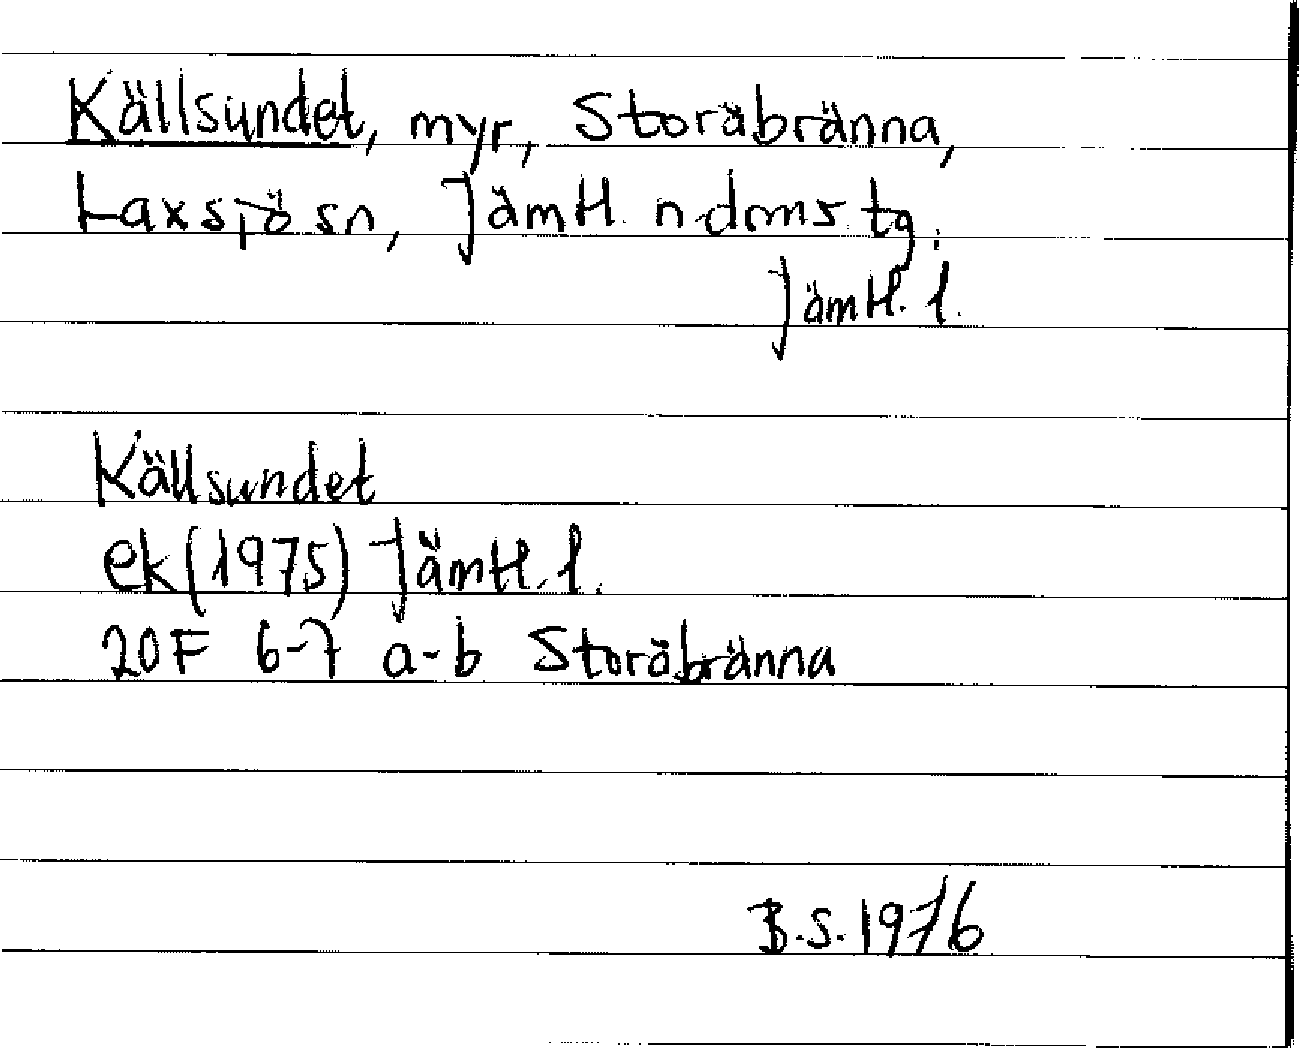 Källsundet, myr, Storåbränna,
Laxsjö sn, Jämtl. n. doms. tg.
Jämtl. l.
Källsundet
ek (1975) Jämtl. l.
20F 6-7 a-b Storåbränna
B.S. 1976